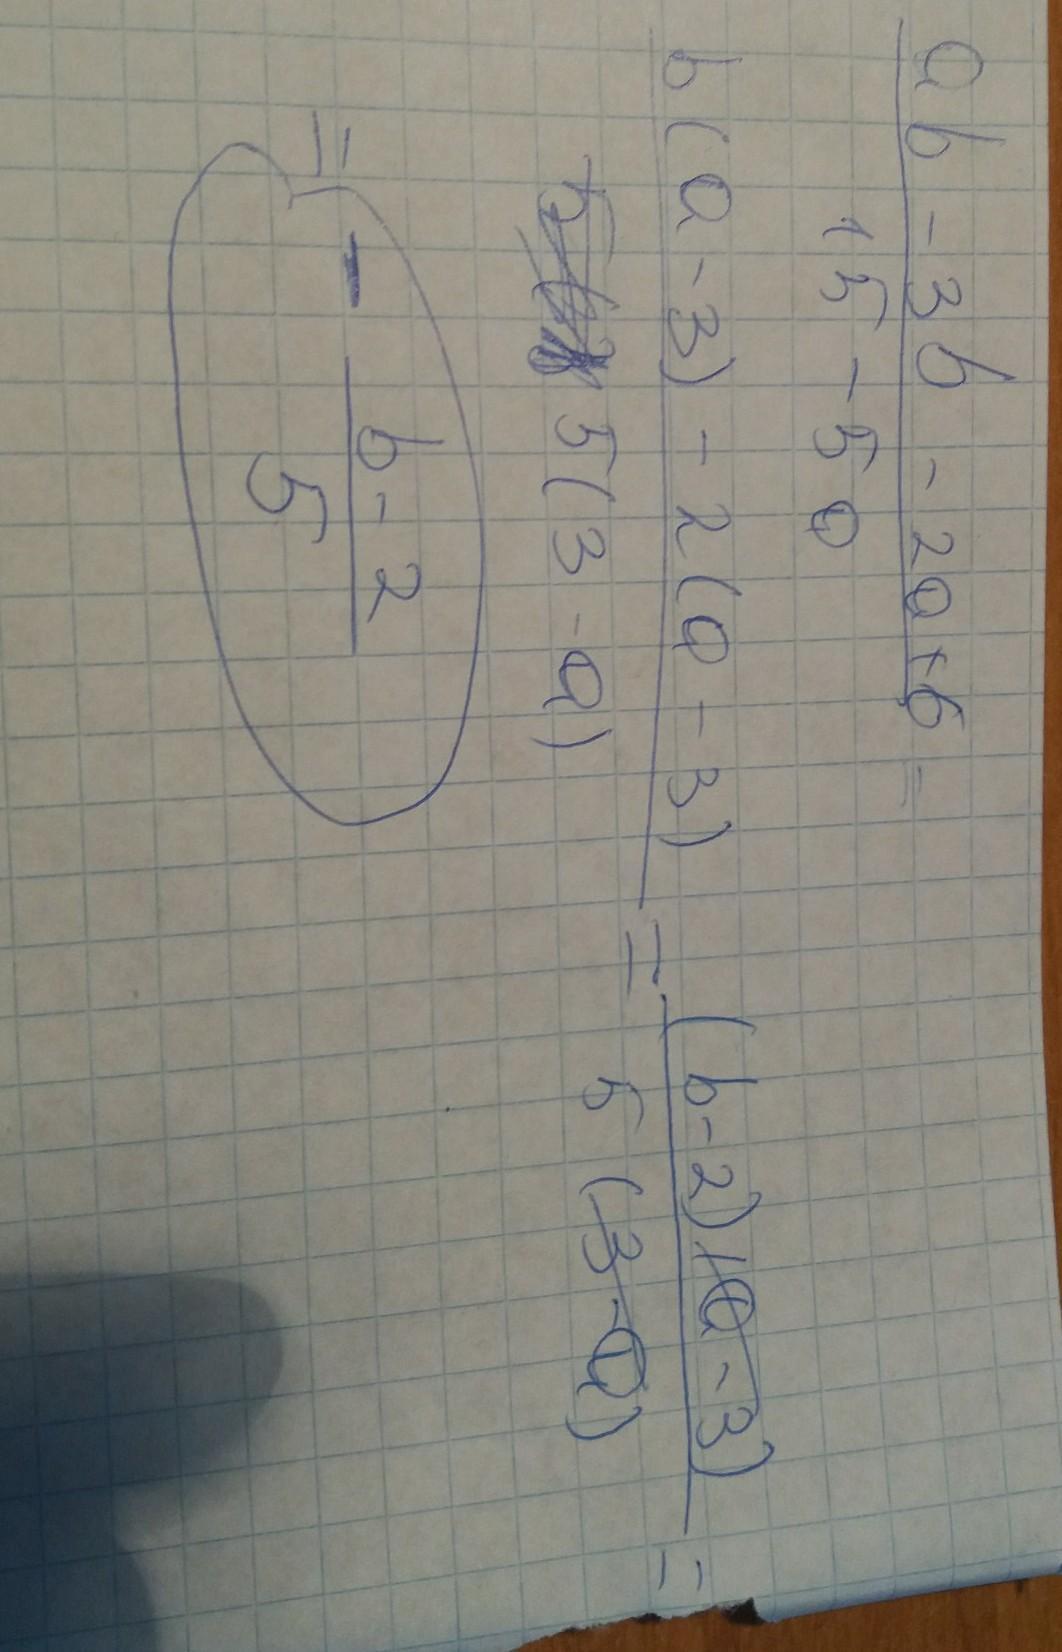 ab - 3b - 2a + 6 =
15 - 5a
b(a - 3) - 2(a - 3) = (b - 2)(a - 3) =
5(3 - a) 5(3 - a)
= - b - 2
5